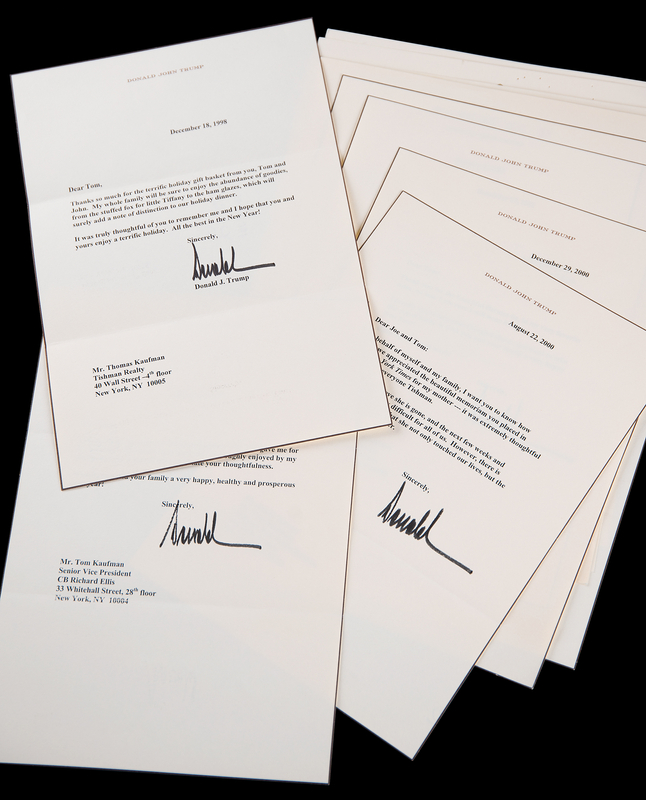 DONALD JOHN TRUMP
December 18, 1998
Dear Tom,
Thanks so much for the terrific holiday gift basket from you, Tom and
John. My whole family will be sure to enjoy the abundance of goodies,
from the stuffed fox for little Tiffany to the ham glazes, which will
surely add a note of distinction to our holiday dinner.
It was truly thoughtful of you to remember me and I hope that you and
yours enjoy a terrific holiday. All the best in the New Year!
Sincerely,
Donald
Donald J. Trump
Mr. Thomas Kaufman
Tishman Realty
40 Wall Street –4th floor
New York, NY 10005
gave me for
enjoyed by my
your thoughtfulness.
your family a very happy, healthy and prosperous
Sincerely,
Donald
Mr. Tom Kaufman
Senior Vice President
CB Richard Ellis
33 Whitehall Street, 28th floor
New York, NY 10004
DONALD JOHN TRUMP
DONALD JOHN TRUMP
December 29, 2000
DONALD JOHN TRUMP
August 22, 2000
Dear Joe and Tom:
behalf of myself and my family, I want you to know how
appreciated the beautiful memoriam you placed in
York Times for my mother — it was extremely thoughtful
everyone Tishman.
she is gone, and the next few weeks and
difficult for all of us. However, there is
she not only touched our lives, but the
Sincerely,
Donald